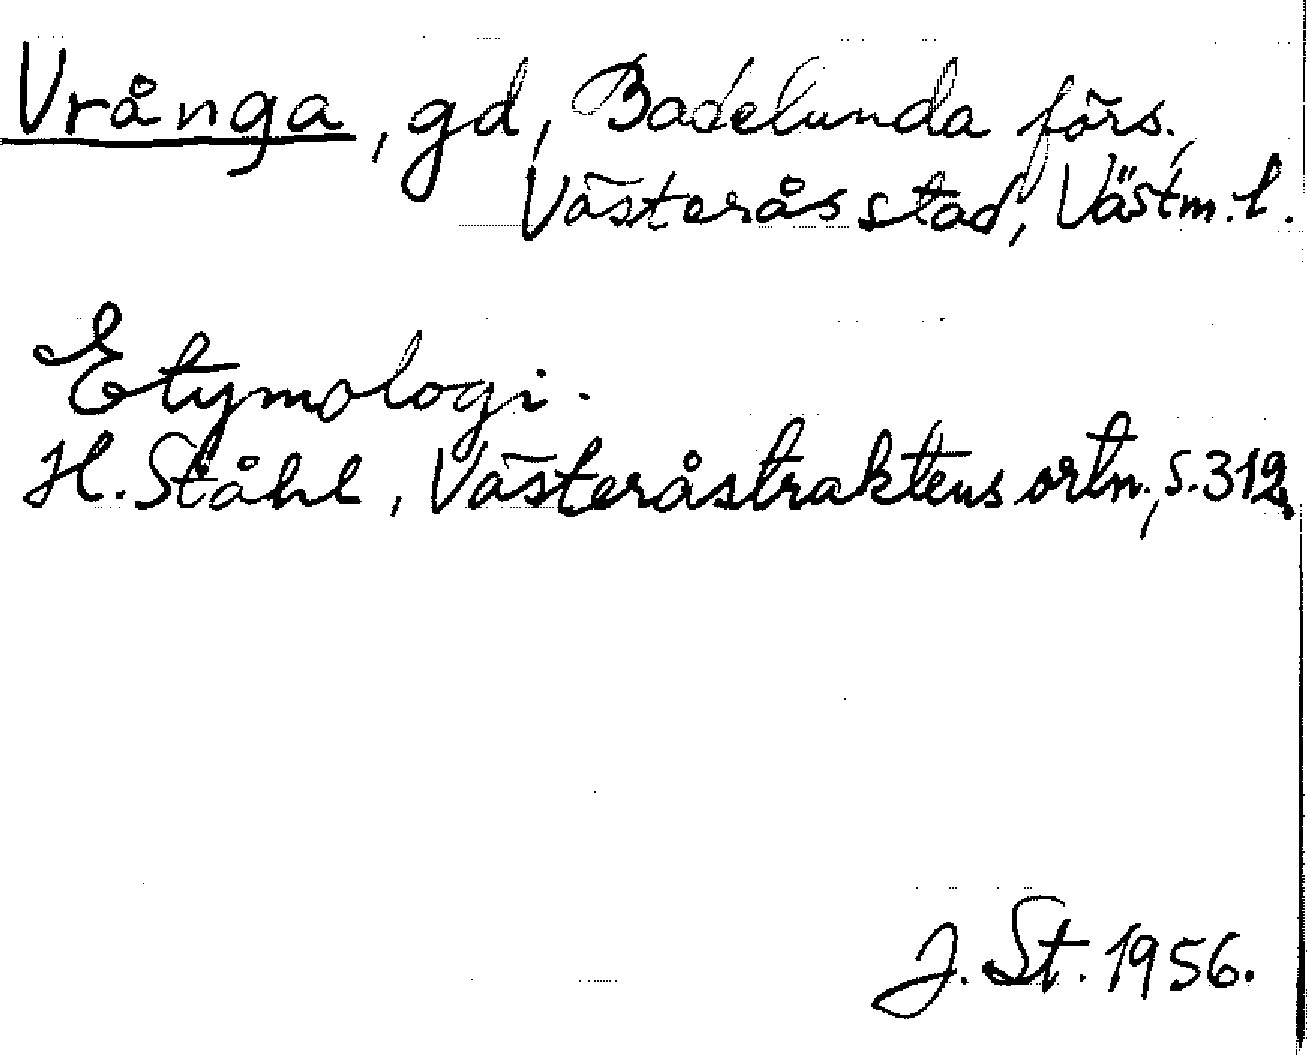 Vrånga, gd, Badelunda förs.,
Västerås stad, Västm. l.
Etymologi.
H. Ståhl, Västeråstraktens ortn., s. 312.
J. St. 1956.